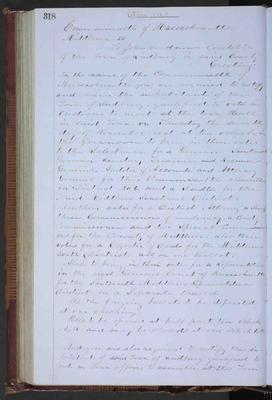 318
Commonwealth of Massachusetts
Middlesex ss
To John Constable
of the Town of Sudbury in said County
Greeting
In the name of the Commonwealth
Massachusetts you are required to notify
and warn the inhabitants of the
Town of Sudbury qualified to vote in
Elections to meet at the Town House
in said Town on Tuesday the
day of November at ten o'clock in
the forenoon to bring in their votes
to the Selectmen for a Governor, Lieutenant
Governor, Secretary, Treasurer and Receiver
General, Auditor of Accounts and Attorney
General for the Commonwealth, a Councillor
in District No. and a Senator for the
Middlesex Senatorial District,
also for a District Attorney, a
three Commissioners of Insolvency, a County
Commissioner and two Special Commissioners
for the County of Middlesex. Also their
votes for a Register of Deeds for the Middlesex
South District all on one Ballot.
Also in their votes for a Representative
in the next General Court of Massachusetts
for the Middlesex Representative
District on a Separate Ballot.
All the foregoing to be deposited
at one
Polls to be open at half past ten o'clock
A.M. and may be closed at o'clock
And you are also required to notify the in-
habitants of said Town of Sudbury qualified to
vote in Town affairs to assemble at the Town